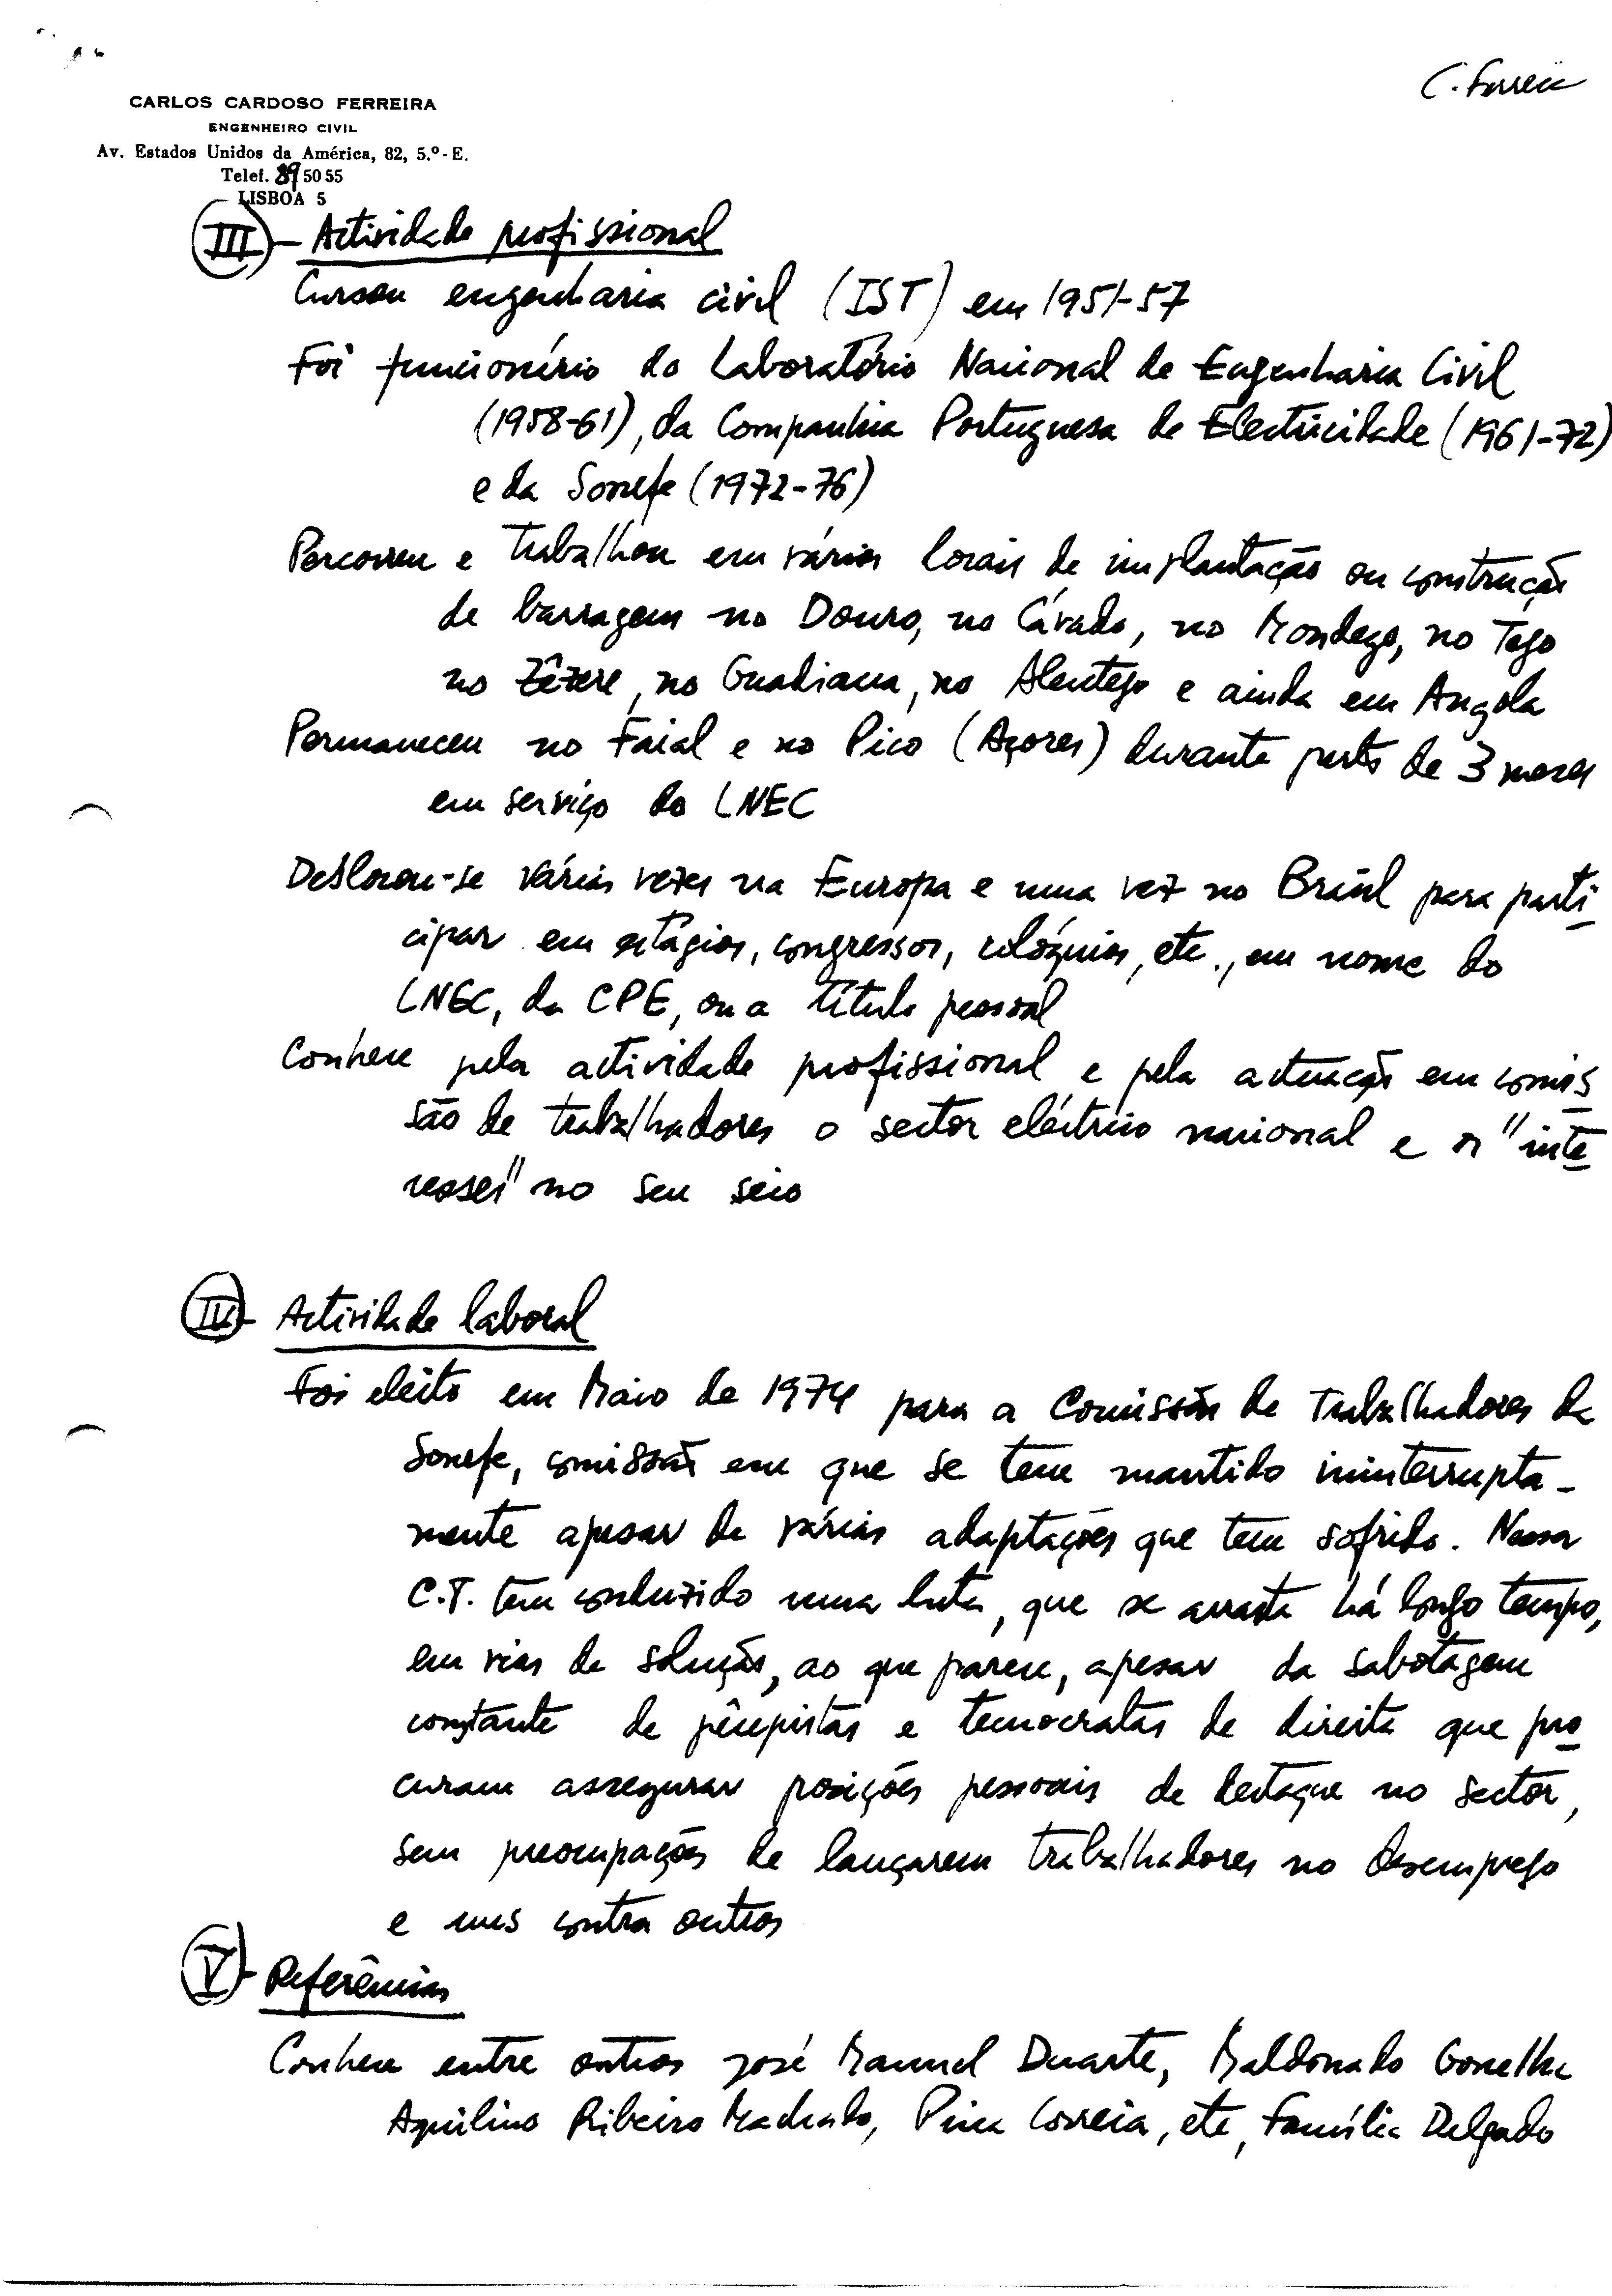 C. Ferreira
CARLOS CARDOSO FERREIRA
ENGENHEIRO CIVIL
Av. Estados Unidos da América, 82, 5.º-E.
Telef. 89 50 55
LISBOA 5
III - Actividade profissional
Cursou engenharia civil (IST) em 1951-57
Foi funcionário do Laboratório Nacional de Engenharia Civil
(1958-61), da Companhia Portuguesa de Electricidade (1961-72)
e da Sonefe (1972-76)
Percorreu e trabalhou em vários locais de implantação ou construção
de barragens no Douro, no Cávado, no Mondego, no Tejo
no Zêzere, no Guadiana, no Alentejo e ainda em Angola
Permaneceu no Faial e no Pico (Açores) durante perto de 3 meses
em serviço do LNEC
Deslocou-se várias vezes na Europa e uma vez no Brasil para parti
cipar em estágios, congressos, colóquios, etc., em nome do
LNEC, da CPE, ou a título pessoal
Conhece pela actividade profissional e pela actuação em comis
são de trabalhadores o sector eléctrico nacional e os "inte
resses" no seu seio
IV - Actividade laboral
Foi eleito em Maio de 1974 para a Comissão de Trabalhadores da
Sonefe, comissão em que se tem mantido ininterrupta-
mente apesar de várias adaptações que tem sofrido. Nessa
C.T. tem conduzido uma luta, que se arrasta há longo tempo,
em vias de solução, ao que parece, apesar da sabotagem
constante de pêcepistas e tecnocratas de direita que pro
curam assegurar posições pessoais de destaque no sector,
sem preocupações de lançarem trabalhadores no desemprego
e uns contra outros
V - Referências
Conhece entre outros José Manuel Duarte, Maldonado Gonelha
Aquilino Ribeiro Machado, Pina Correia, etc, Família Delgado